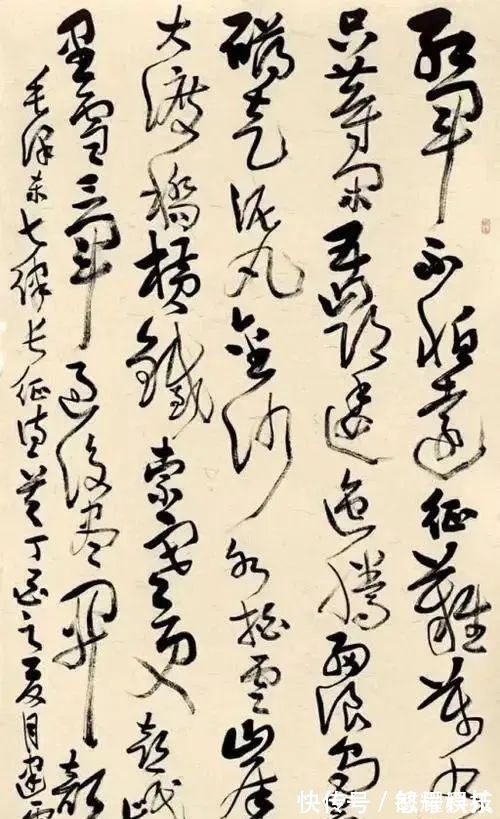 红军不怕远征难万水
只等闲五岭逶迤腾细浪乌
礴走泥丸金沙水拍云崖
大渡桥横铁索寒更喜岷
里雪三军过后尽开颜
毛泽东七律长征诗 丁酉之夏月建
快传号 /